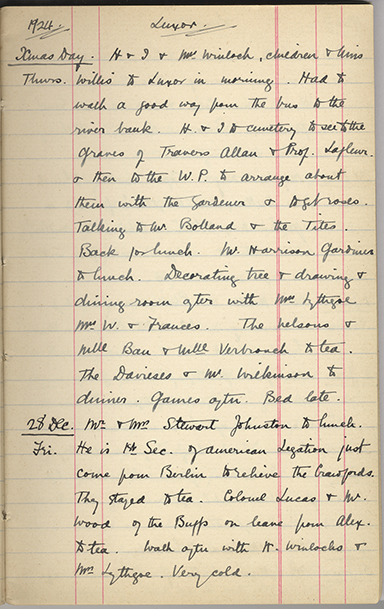 1924. Luxor.
Xmas Day. H & I & Mrs Winlock, children & Miss
Thurs. Willis to Luxor in morning. Had to
walk a good way from the bus to the
river bank. H. & I to cemetery to see to the
graves of Travers Allan & Prof. Lafleur.
& then to the W.P. to arrange about
them with the Gardener & to get roses.
Talking to Mr Bolland & the Tites.
Back for lunch. Mr. Harrison Gardiner
to lunch. Decorating tree & drawing &
dining room after with Mrs Lythgoe
Mrs W. & Frances. The Nelsons &
Mlle Bau & Mlle to tea.
The Davieses & Mr. Wilkinson to
dinner. Games after. Bed late.
28 Dec. Mr. & Mrs Stewart Johnston to lunch.
Fri. He is 1st Sec. of American Legation just
come from Berlin to relieve the Crawfords.
They stayed to tea. Colonel Lucas & Mr.
Wood of the Buffs on leave from Alex.
to tea. Walk after with H. Winlocks &
Mrs Lythgoe. Very cold.